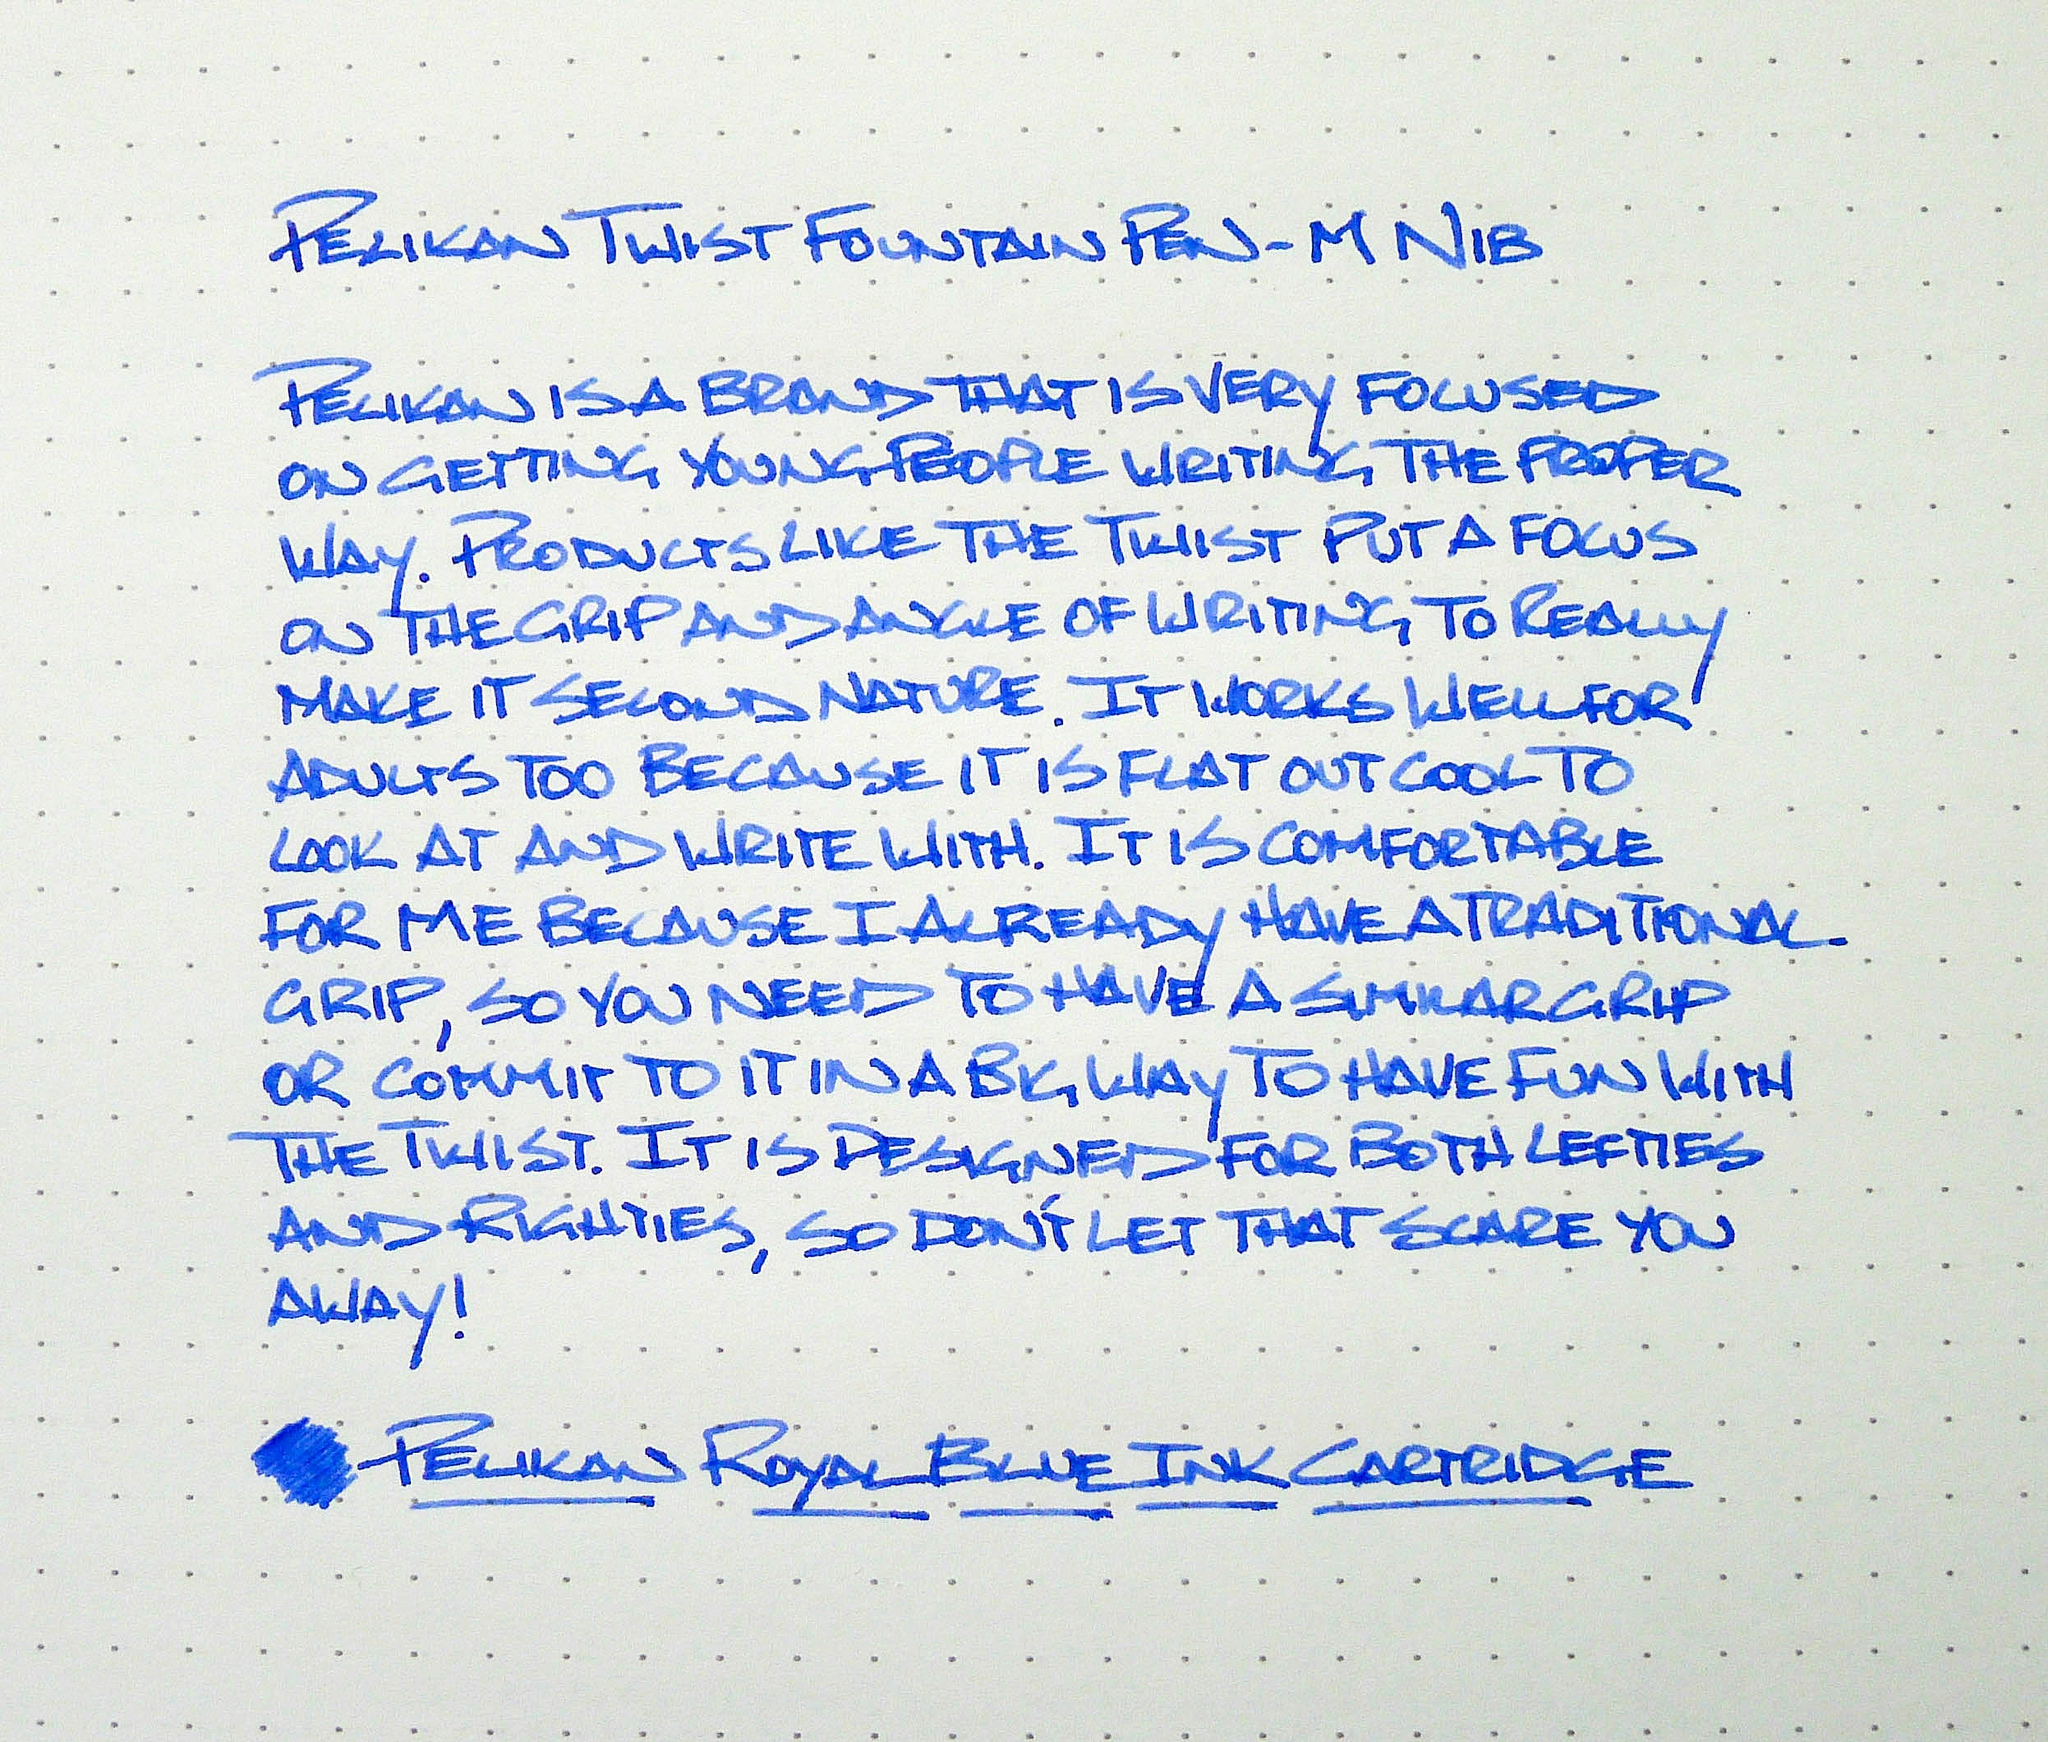 PELIKAN TWIST FOUNTAIN PEN - M NIB
PELIKAN IS A BRAND THAT IS VERY FOCUSED
ON GETTING YOUNG PEOPLE WRITING THE PROPER
WAY. PRODUCTS LIKE THE TWIST PUT A FOCUS
ON THE GRIP AND ANGLE OF WRITING TO REALLY
MAKE IT SECOND NATURE. IT WORKS WELL FOR
ADULTS TOO BECAUSE IT IS FLAT OUT COOL TO
LOOK AT AND WRITE WITH. IT IS COMFORTABLE
FOR ME BECAUSE I ALREADY HAVE A TRADITIONAL
GRIP, SO YOU NEED TO HAVE A SIMILAR GRIP
OR COMMIT TO IT IN A BIG WAY TO HAVE FUN WITH
THE TWIST. IT IS DESIGNED FOR BOTH LEFTIES
AND RIGHTIES, SO DON'T LET THAT SCARE YOU
AWAY!
PELIKAN ROYAL BLUE INK CARTRIDGE